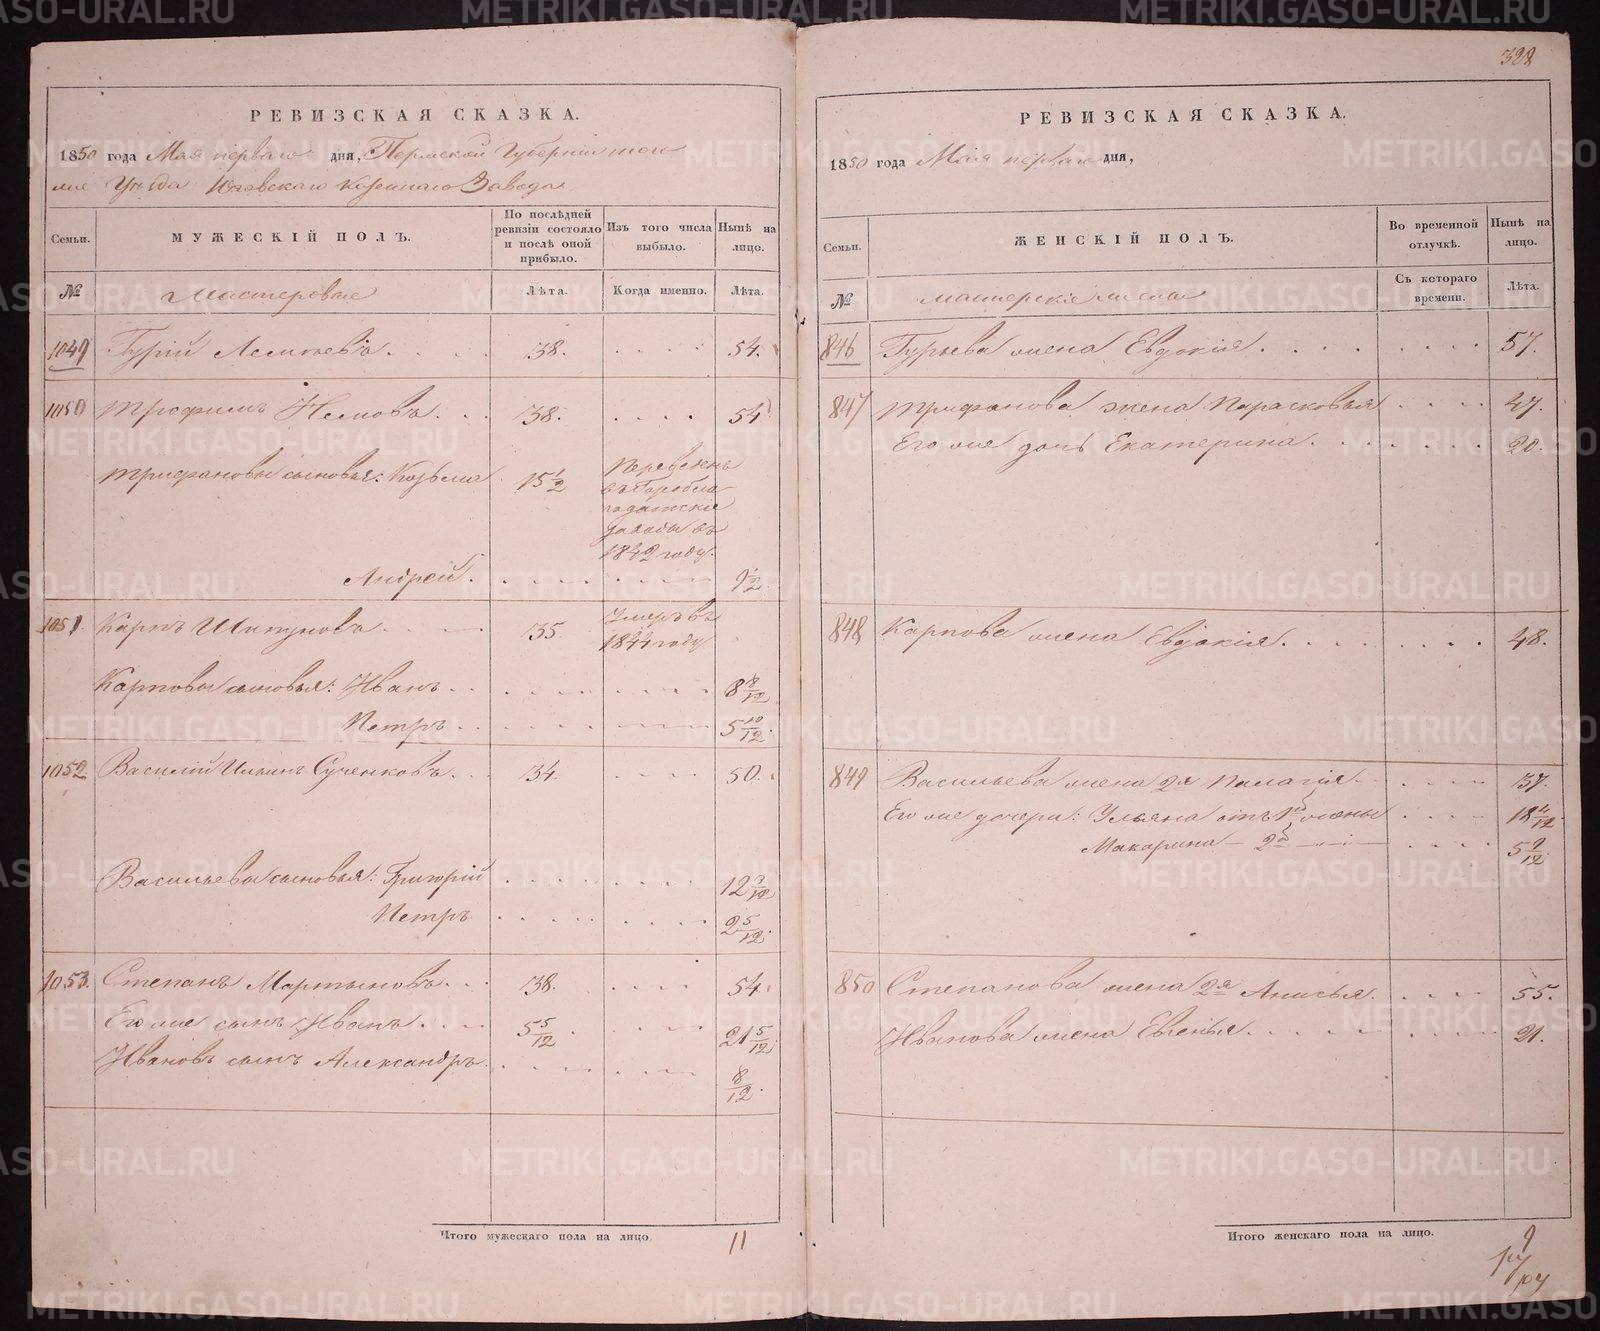 328
РЕВИЗСКАЯ СКАЗКА.
1850 года Мая перваго дня, Пермской Губернiи того
же Уѣзда Юговскаго Казеннаго Завода
Семьи.
МУЖЕСКІЙ ПОЛЪ.
По послѣдней ревизіи состояло и послѣ оной прибыло.
Изъ того числа выбыло.
Нынѣ на лицо.
№
Мастеровые
Лѣта.
Когда именно.
Лѣта.
1049 Гурій 38. 54.
1050 Трофимъ 38. 54
Трифановы сыновья: Козьма 15 1/2
Перевед
въ Горобла
годатскіе
заводы въ
1842 году.
Андрей. 9 1/2
1051. Карпъ Шипуновъ 35.
Умеръ въ
1844 году
Карповы сыновья: Иванъ 8 8/12
Петръ 5 10/12.
1052 Василій Сученковъ. 34. 50.
Васильевы сыновья: Григорій 12 9/12
Петръ 2 5/12.
1053. Степанъ Мартыновъ. 38. 54.
Его же сынъ Иванъ. 5 5/12. 21 5/12.
Ивановъ сынъ Александръ 8/12.
Итого мужескаго пола на лицо. 11
РЕВИЗСКАЯ СКАЗКА.
1850 года Мая перваго дня,
Семьи.
ЖЕНСКІЙ ПОЛЪ.
Во временной отлучкѣ.
Нынѣ на лицо.
№
мастерскіе жены
Съ котораго времени.
Лѣта.
846 Гурьева жена Евдокія. 57.
847 Трифанова жена Парасковья 47.
Его же дочь Екатерина. 20.
848 Карпова жена Евдокія. 48.
849 Васильева жена 2я Палагія. 37.
Его же дочери: Ульяна отъ 1й жены 18 4/12.
Макарина — 2й 5 9/12.
850 Степанова жена 2я Анисья. 55.
Иванова жена Евгенья. 21.
Итого женскаго пола на лицо. 9
METRIKI.GASO-URAL.RU